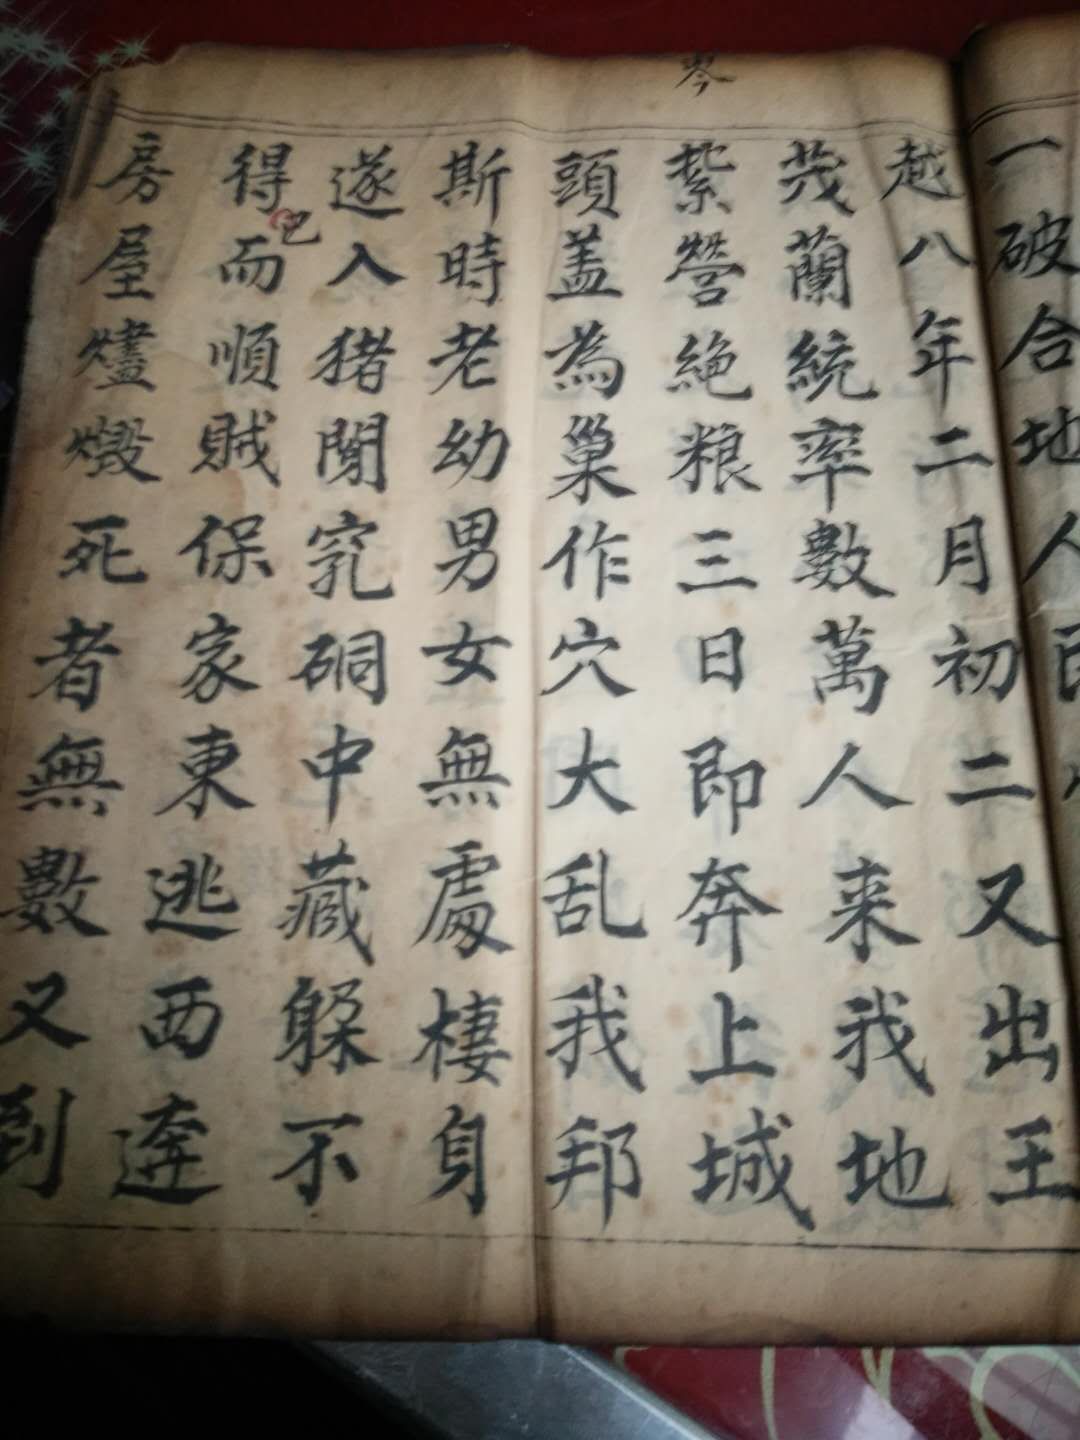 一破合地人民
越八年二月初二又出王
茂蘭統率數萬人来我地
紮營絕粮三日即奔上城
岑
頭盖為巢作穴大乱我邦
斯時老幼男女無處棲身
遂入猪閗究硐中藏躱不
得而順賊保家東逃西逩
巴
房屋燼燬死者無數又到